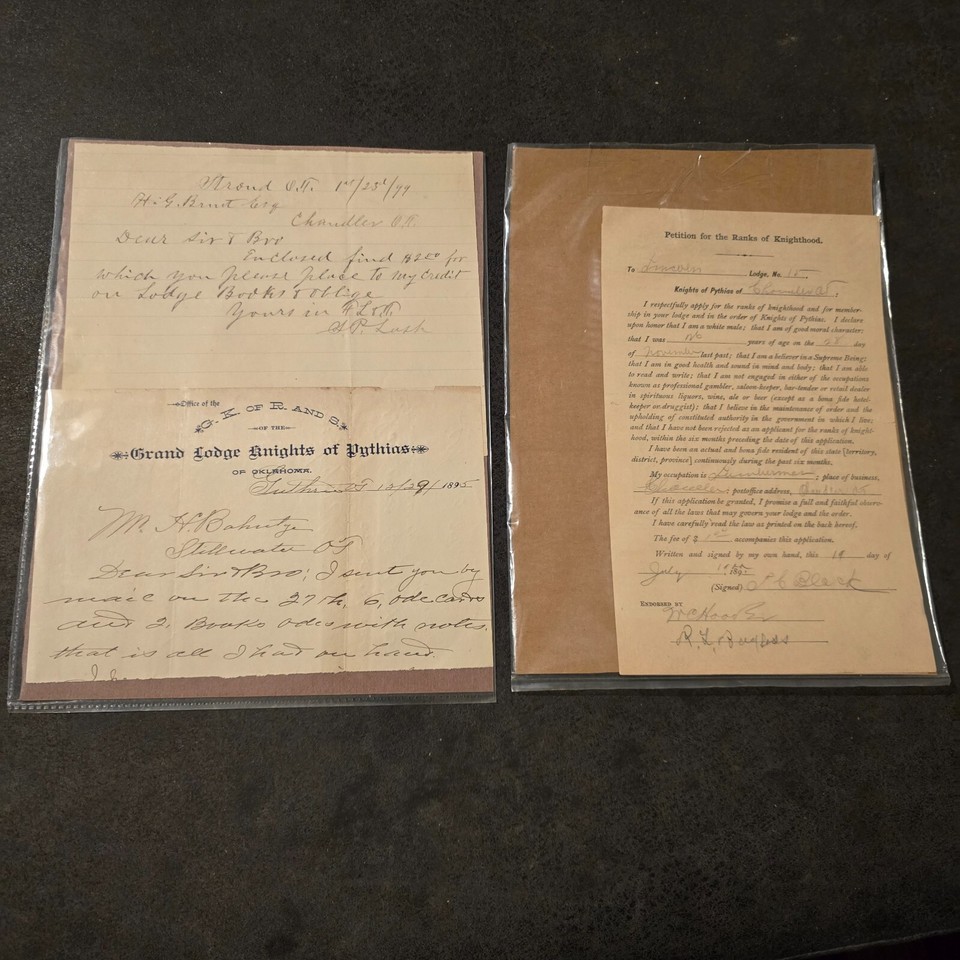 Stroud O.T. 1st/23d/99
H. G. Brunt Esq
Chandler O.T.
Dear Sir & Bro
Enclosed find $2.00 for
which you please place to my credit
on Lodge Books & oblige
Yours in F. C. & B.
H P. Lash
Office of the
G. K. OF R. AND S.
OF THE
Grand Lodge Knights of Pythias
OF OKLAHOMA.
Guthrie O T 12/29/1895
Mr H.
Stillwater O T
Dear Sir & Bro; I sent you by
mail on the 27th, 6, ode cards
and 2, Books odes with notes.
that is all I had on hand.
Petition for the Ranks of Knighthood.
To Lincoln Lodge, No. 15
Knights of Pythias of Chandler O.T.,
I respectfully apply for the ranks of knighthood and for member-
ship in your lodge and in the order of Knights of Pythias. I declare
upon honor that I am a white male; that I am of good moral character;
that I was 26 years of age on the 28 day
of November last past; that I am a believer in a Supreme Being;
that I am in good health and sound in mind and body; that I am able
to read and write; that I am not engaged in either of the occupations
known as professional gambler, saloon-keeper, bar-tender or retail dealer
in spirituous liquors, wine, ale or beer (except as a bona fide hotel-
keeper or druggist); that I believe in the maintenance of order and the
upholding of constituted authority in the government in which I live;
and that I have not been rejected as an applicant for the ranks of knight-
hood, within the six months preceding the date of this application.
I have been an actual and bona fide resident of this state [territory,
district, province] continuously during the past six months.
My occupation is Lumberman; place of business,
Chandler; postoffice address,
If this application be granted, I promise a full and faithful observ-
ance of all the laws that may govern your lodge and the order.
I have carefully read the law as printed on the back hereof.
The fee of $ accompanies this application.
Written and signed by my own hand, this 19 day of
July 189
(Signed) Clark
ENDORSED BY
R. L. Burgess